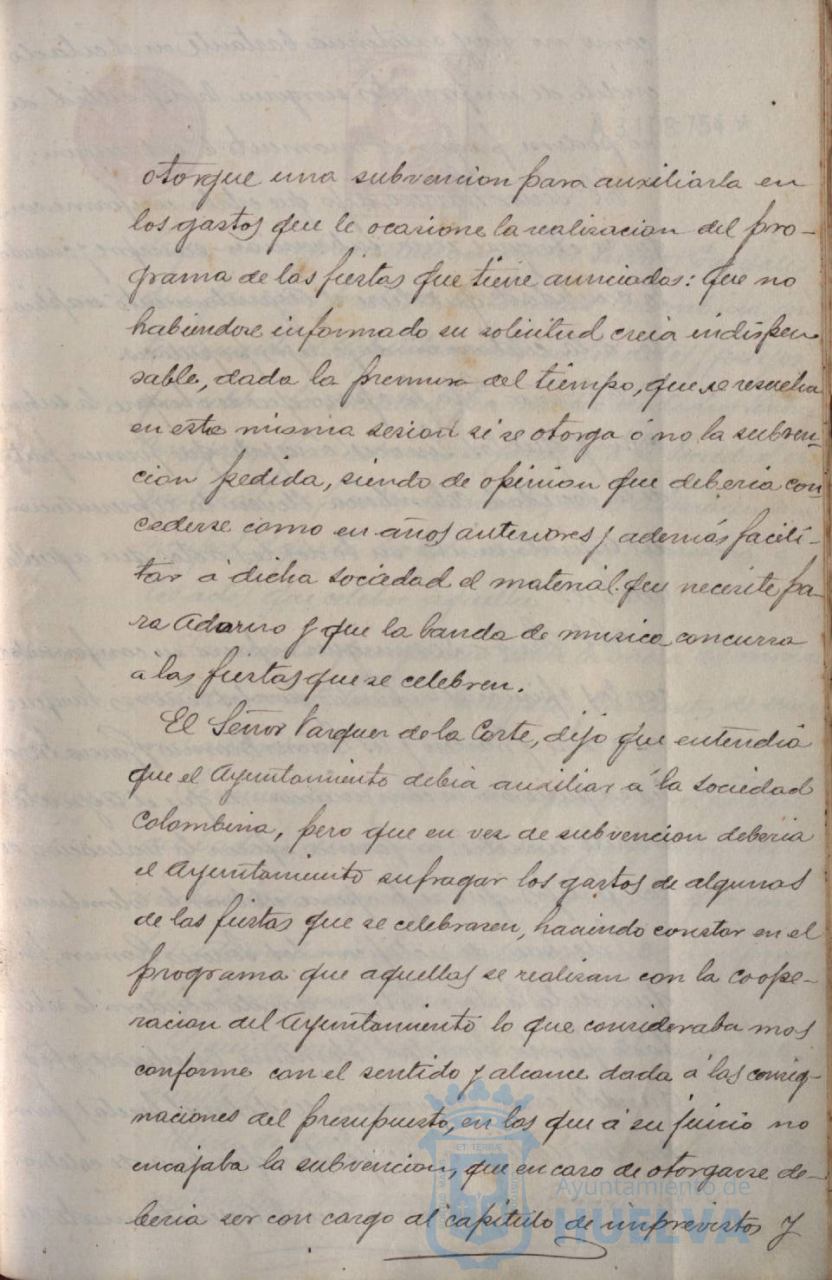 otorgue una subvencion para auxiliarla en
los gastos que le ocasione la realizacion del pro-
grama de las fiestas que tiene anunciadas: que no
habiendose informado su solicitud creia indispen
sable, dada la premura del tiempo, que se resuelva
en esta misma sesion si se otorga ó no la subven-
cion pedida, siendo de opinion que deberia con
cederse como en años anteriores y además facili-
tar á dicha sociedad el material que necesite pa-
ra adorno y que la banda de musica concurra
á las fiestas que se celebren.
El Señor Vazquez de la Corte, dijo que entendia
que el Ayuntamiento debia auxiliar á la sociedad
Colombina, pero que en vez de subvencion deberia
el Ayuntamiento sufragar los gastos de algunas
de las fiestas que se celebrasen, haciendo constar en el
programa que aquellas se realizan con la coope-
racion del Ayuntamiento lo que consideraba mas
conforme con el sentido y alcance dada á las consig-
naciones del presupuesto, en las que á su juicio no
encajaba la subvencion, que en caso de otorgarse de-
beria ser con cargo al capitulo de imprevistos y
Ayuntamiento de
HUELVA